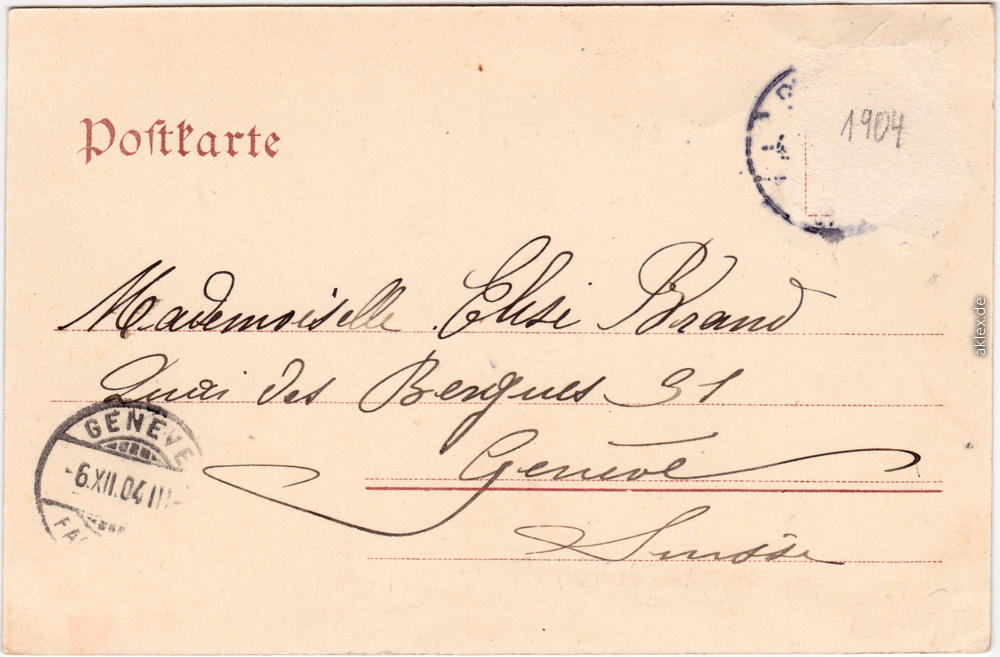 Postkarte
1904
Mademoiselle Elisi Brand
Quai des Bergues 31
Genève
Suisse
GENEVE
-6.XII.04 III-
aklex.de